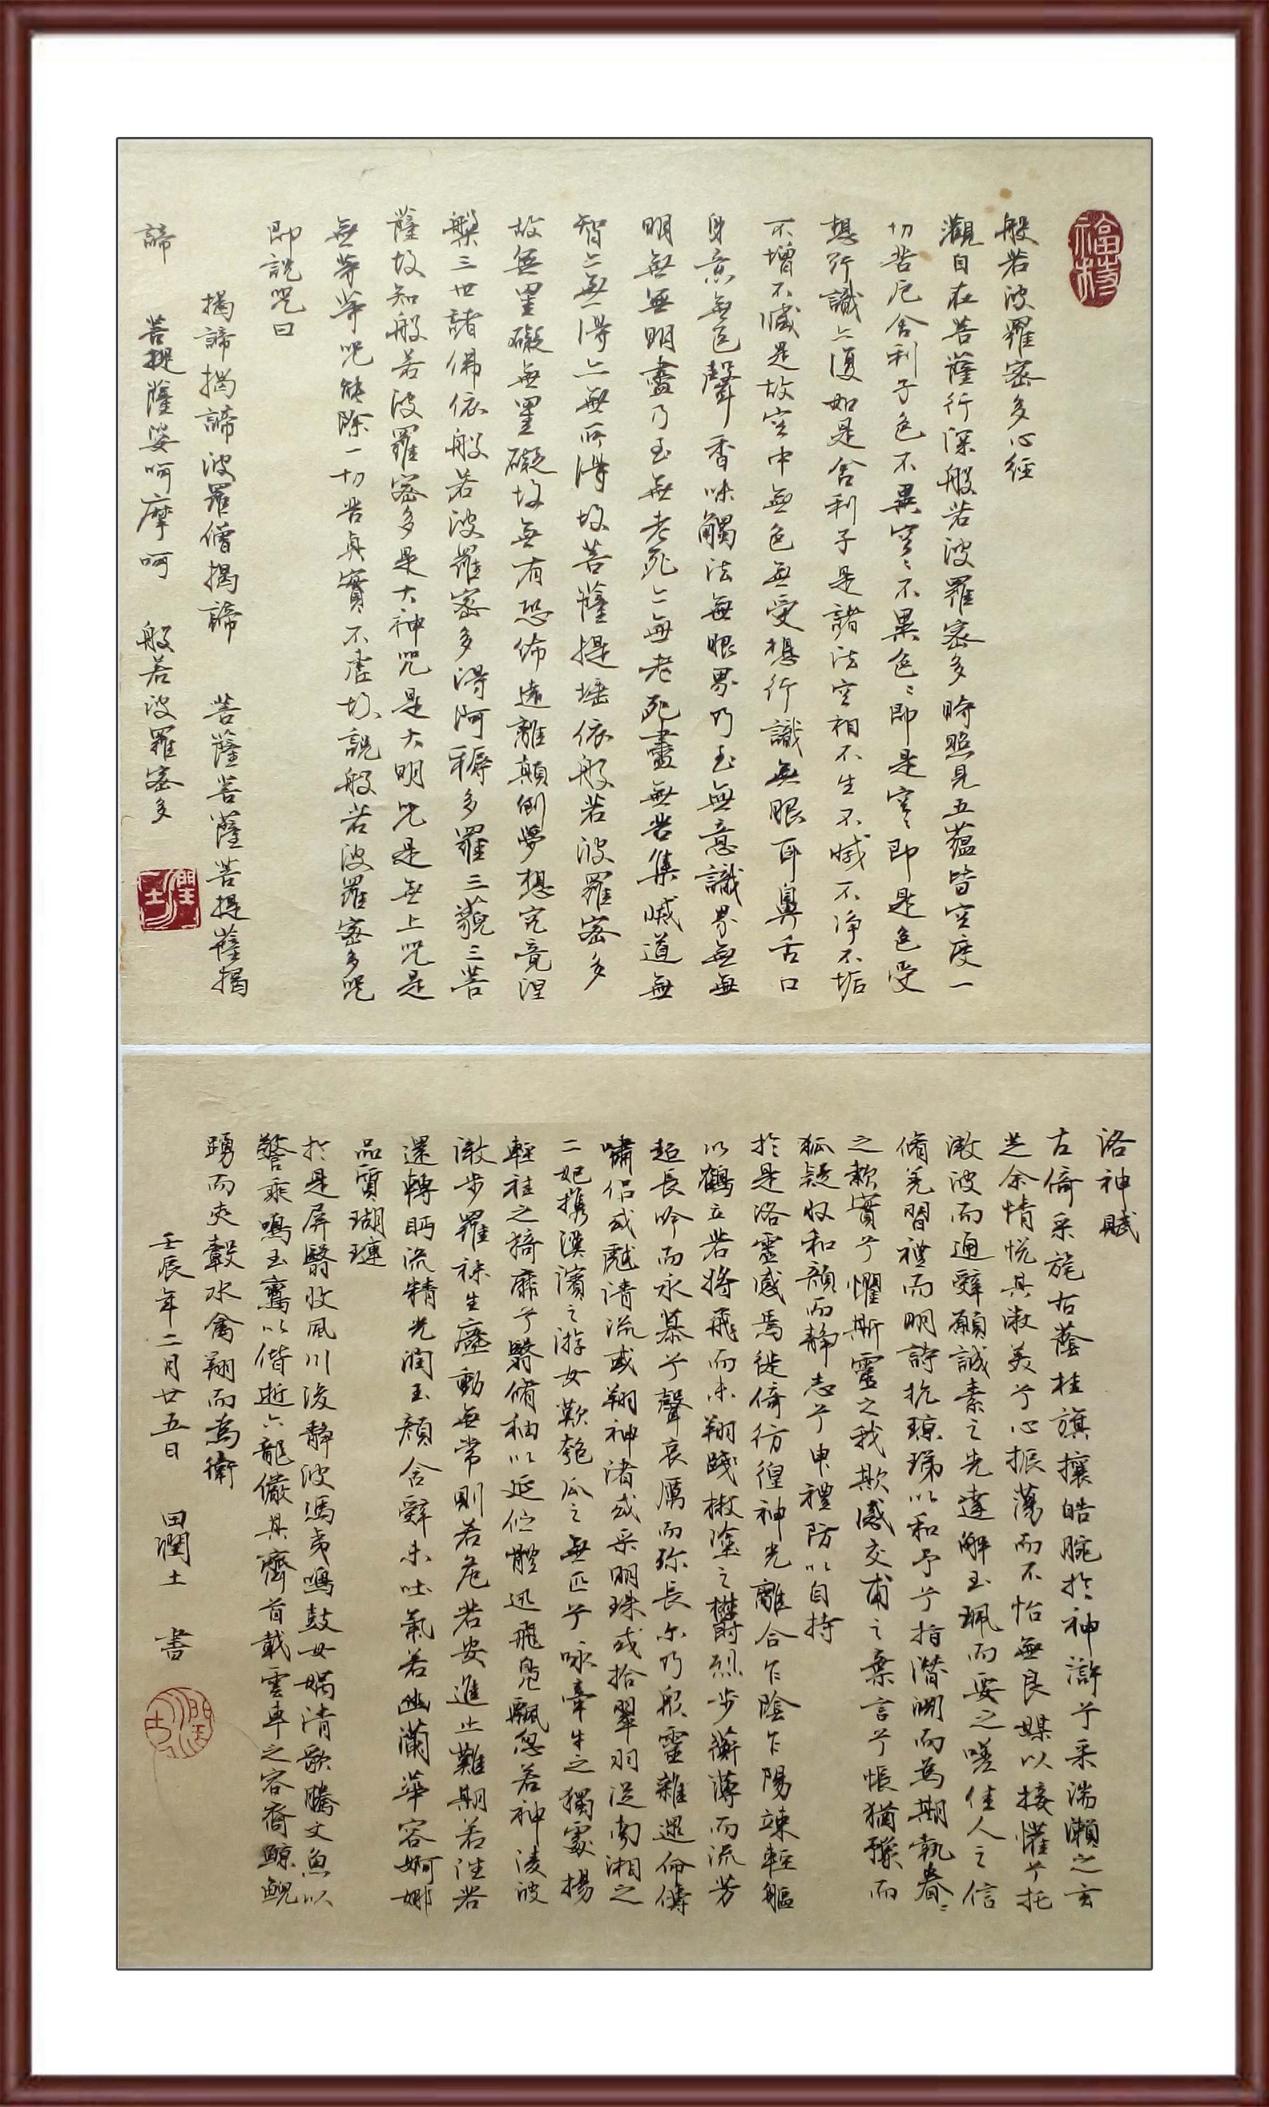 福校
般若波羅密多心經
觀自在菩薩行深般若波羅密多時照見五蘊皆空度一
切苦厄舍利子色不異空〻不異色〻即是空〻即是色受
想行識亦復如是舍利子是諸法空相不生不滅不淨不垢
不增不減是故空中無色無受想行識無眼耳鼻舌口
身意無色聲香味觸法無眼界乃至無意識界無無
明無無明盡乃至無老死亡無老死盡無苦集滅道無
智亦無得亦無所得故菩薩提埵依般若波羅密多
故無罣礙無罣礙故無有恐佈遠離顛倒夢想究竟涅
槃三世諸佛依般若波羅密多得阿耨多羅三藐三菩
薩故知般若波羅密多是大神咒是大明咒是無上咒是
無等等咒能除一切苦真實不虛故說般若波羅密多咒
即說咒曰
揭諦揭諦波羅僧揭諦 菩薩菩薩菩提薩揭
諦 菩提薩婆呵摩呵 般若波羅密多
潤土
洛神賦
左倚采旄右蔭桂旗攘皓腕於神滸兮采湍瀨之玄
芝余情悅其淑美兮心振蕩而不怡無良媒以接懽兮托
激波而通辭願誠素之先達解玉珮而要之嗟佳人之信
脩羌習禮而明詩抗瓊珶以和予兮指潛淵而為期執眷〻
之款實兮懼斯靈之我欺感交甫之棄言兮悵猶豫而
狐疑收和顏而靜志兮申禮防以自持
於是洛靈感焉徙倚彷徨神光離合乍陰乍陽竦輕軀
以鶴立若將飛而未翔踐椒塗之鬱烈步蘅薄而流芳
超長吟而永慕兮聲哀厲而弥長尔乃衆靈雜遝命儔
嘯侣或戲清流或翔神渚或采明珠或拾翠羽從南湘之
二妃攜漢濱之游女歎匏瓜之無匹兮咏牽牛之獨處揚
輕袿之猗靡兮翳脩袖以延佇體迅飛鳧飄忽若神淩波
微步羅袜生塵動無常則若危若安進止難期若往若
還轉眄流精光潤玉顏含辭未吐氣若幽蘭華容婀娜
品質瑚璉
於是屏翳收風川後靜波馮夷鳴鼓女媧清歌騰文魚以
警乘鳴玉鸞以偕逝六龍儼其齊首載雲車之容裔鯨鯢
踴而夾轂水禽翔而為衛
壬辰年二月廿五日 田潤土 書
潤土